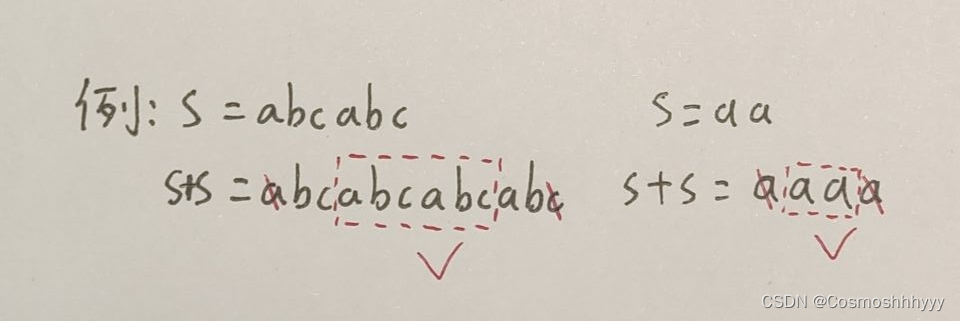 例: s = abcabc
s+s = abcabcabcabc
s = aa
s+s = aaaa
CSDN @Cosmoshhhyyy